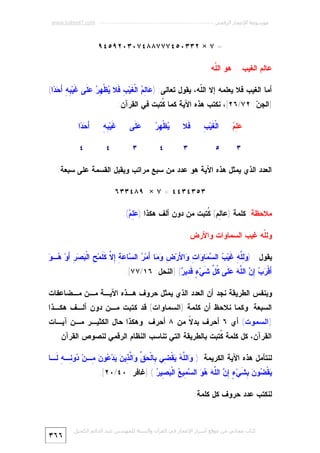 www.kaheel7.com موسوعة الإعجاز الرقمي
= ٧ × ٢٣٣٠٤٧٧٨٨٧٤٧٠٣٠٩٢٥٩٤٩
عالم الغيب هو الله
أما الغيب فلا يعلمه إلا الله، يقول تعالى (عَالِمُ الْغَيْبِ فَلَا يُظْهِرُ عَلَى غَيْبِهِ أَحَدًا)
[الجنّ ٢٦/٧٢]، نكتب هذه الآية كما كُتبت في القرآن
عَلِمُ الْغَيْبِ فَلَا يُظْهِرُ عَلَى غَيْبِهِ أَحَدًا
٣ ٥ ٣ ٤ ٣ ٤ ٤
العدد الذي يمثل هذه الآية هو عدد من سبع مراتب ويقبل القسمة على سبعة
٤٤٣٤٣٥٣ = ٧ × ٦٣٣٤٧٩
ملاحظة كلمة (عالم) كُتبت من دون ألف هكذا (عَلِمُ)
ولله غيب السماوات والأرض
يقول (وَلِلَّهِ غَيْبُ السَّمَاوَاتِ وَالأَرْضِ وَمَا أَمْرُ السَّاعَةِ إِلاَّ كَلَمْحِ الْبَصَرِ أَوْ هُـوَ
أَقْرَبُ إِنَّ اللَّهَ عَلَى كُلِّ شَيْءٍ قَدِيرٌ) [النحل ٧٧/١٦]
وبنفس الطريقة نجد أن العدد الذي يمثل حروف هـذه الآيـة مـن مـضاعفات
السبعة وكما نلاحظ أن كلمة (السماوات) قد كتبت مـن دون ألـف هكـذا
(السموت) أي ٦ أحرف بدلاً من ٨ أحرف وهكذا حال الكثيـر مـن آيـات
القرآن، كل كلمة كُتبت بالطريقة التي تناسب النظام الرقمي لنصوص القرآن
لنتأمل هذه الآية الكريمة (وَاللَّهُ يَقْضِي بِالْحَقِّ وَالَّذِينَ يَدْعُونَ مِـنْ دُونِـهِ لَـا
يَقْضُونَ بِشَيْءٍ إِنَّ اللَّهَ هُوَ السَّمِيعُ الْبَصِيرُ) [غافر ٢٠/٤٠]
لنكتب عدد حروف كل كلمة
كتاب مجاني من موقع أسرار الإعجاز في القرآن والسنة للمهندس عبد الدائم الكحيل
٣٦٦